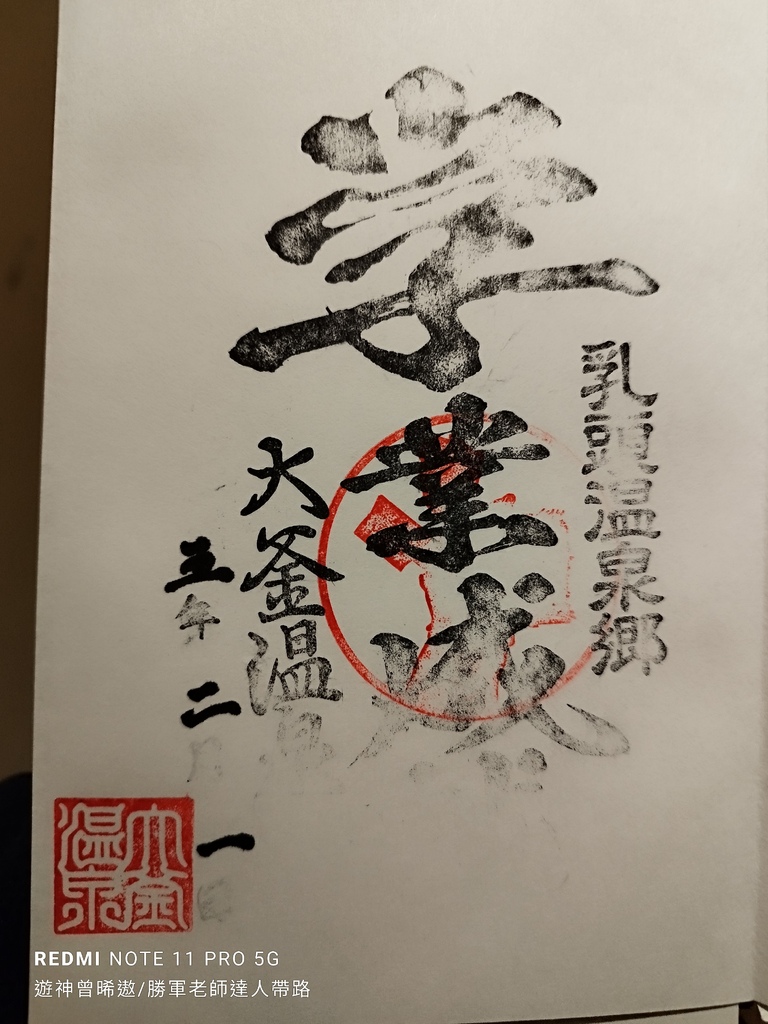 乳頭温泉郷
学業成
大釜温泉
五年二月一日
大釜温泉
REDMI NOTE 11 PRO 5G
遊神曾晞遨/勝軍老師達人帶路